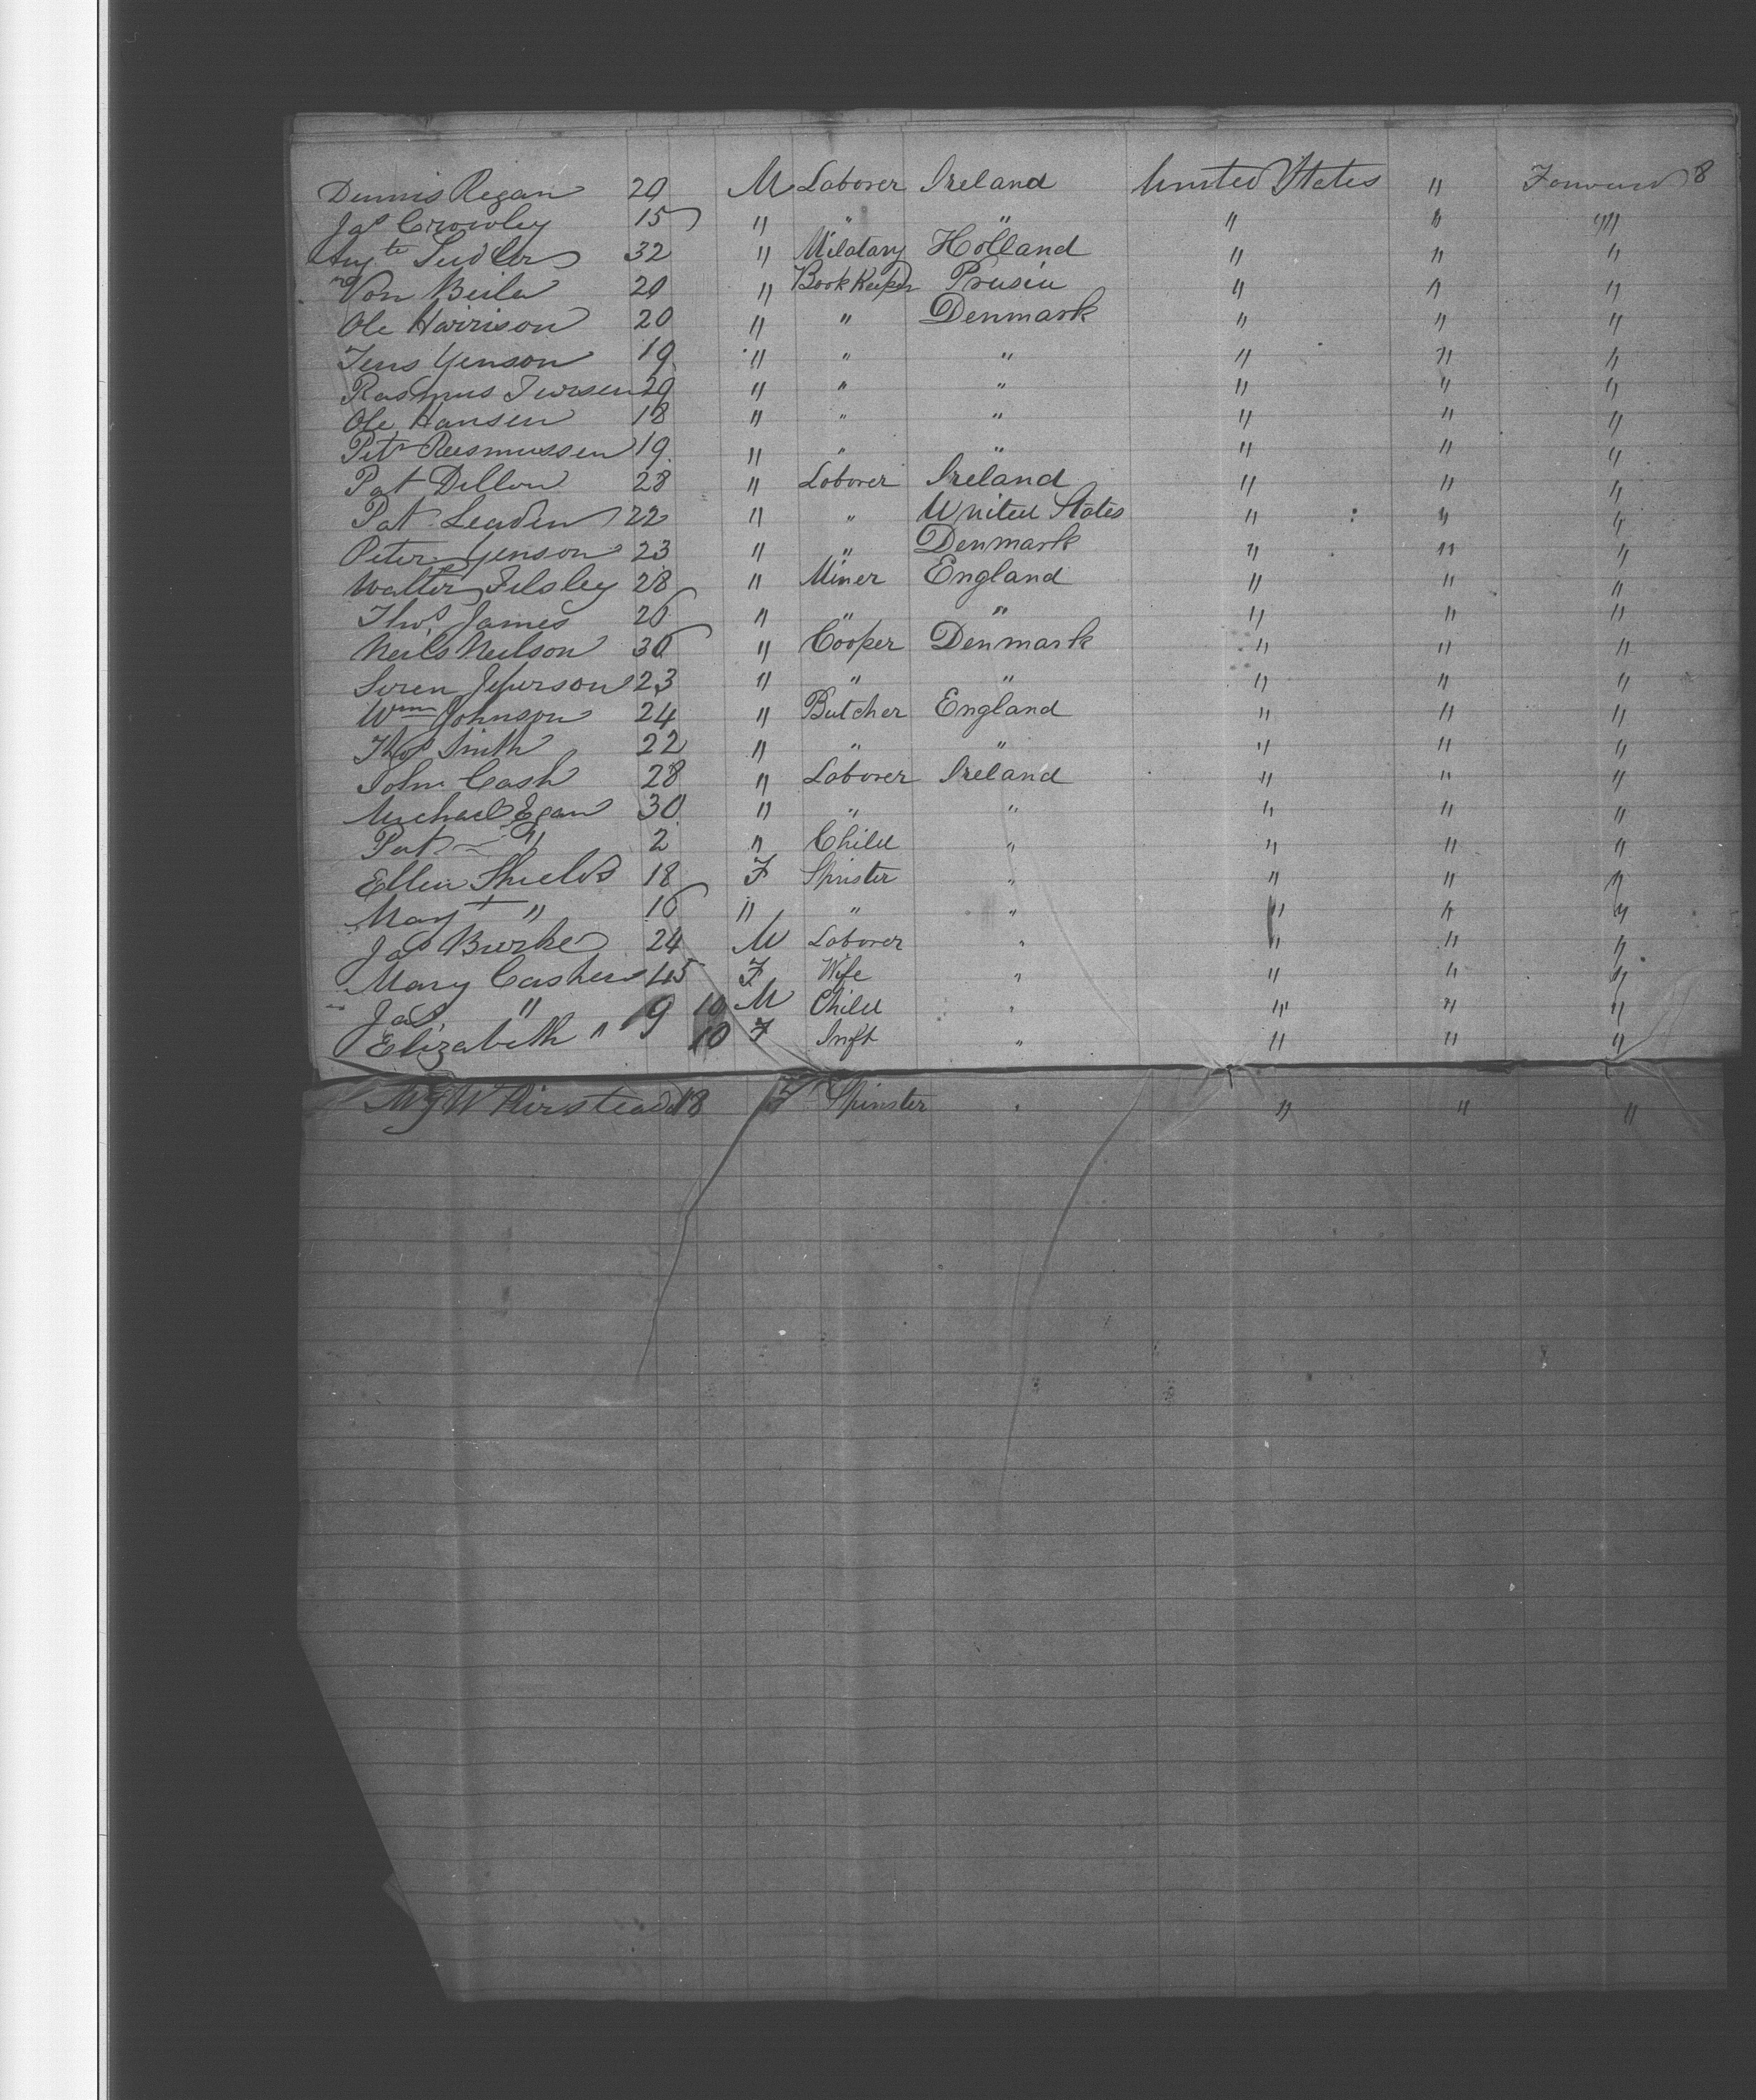 Dennis Regan 20 M Laborer Ireland United States " Forward 8
Jas Crowley 15 " " " " " "
Augte 32 " Milatary Holland " " "
Von 20 " Book Keeper Prusia " " "
Ole Harrison 20 " " Denmark " " "
Jens Yenson 19 " " " " " "
Rasmus 20 " " " " " "
Ole Hansen 18 " " " " " "
Petr Rasmussen 19 " " " " " "
Pat Dillon 28 " Laborer Ireland " " "
Pat Leaden 22 " " United States " " "
Peter Yenson 23 " " Denmark " " "
Walter Filsley 28 " Miner England " " "
Thos James 26 " " " " " "
Neils Neilson 30 " Cooper Denmark " " "
Soren Jepurson 23 " " " " " "
Wm Johnson 24 " Butcher England " " "
Thos Smith 22 " " " " " "
John Cash 28 " Laborer Ireland " " "
Michael Egan 30 " " " " " "
Pat " 2 " Child " " " "
Ellen Shields 18 F Spinster " " " "
Mary " 16 " " " " " "
Jas Burke 24 M Laborer " " " "
Mary Cashen 45 F Wife " " " "
Jas " 9 10 M Child " " " "
Elizabeth " 9 10 F Inft " " " "
W 18 F Spinster " " " "